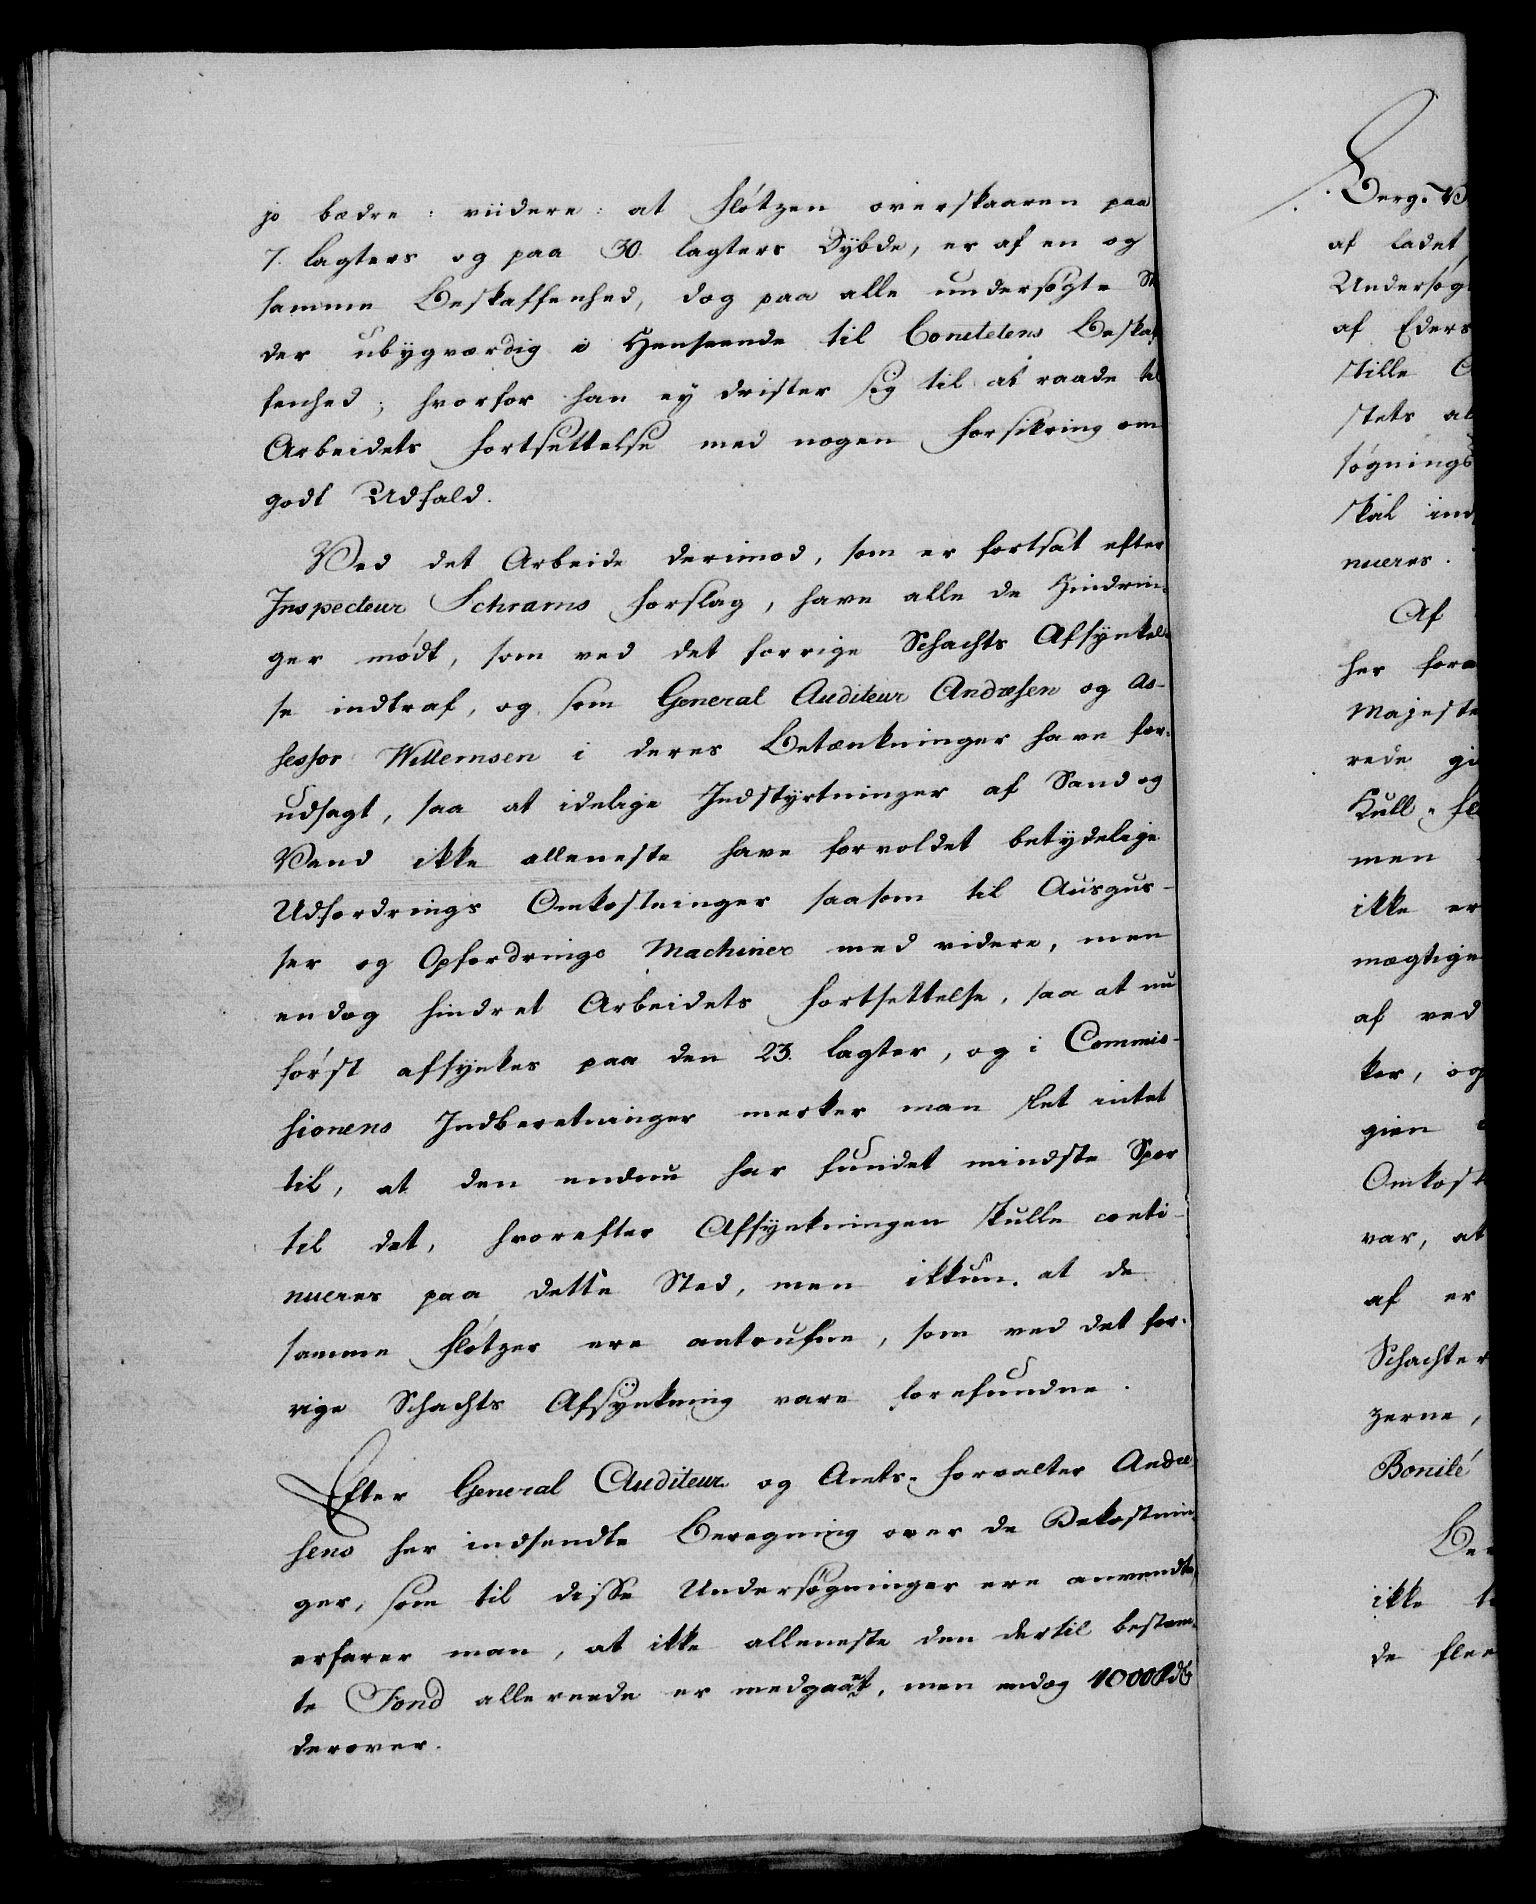 jo bædre: viidere: at Fløtzen overskaaren paa
7. Lagters og paa 30. Lagters Dybde, er af en og
samme Beskaffenhed, dog paa alle undersøgte St
der ubygværdig i Henseende til Bonitetens Beskaf
fenhed; hvorfor han ey drister sig til at raade til
Arbeidets Fortsættelse med nogen Forsikring om
godt Udfald.
Ved det Arbeide derimod, som er fortsat efter
Inspecteur Schrams Forslag, have alle de Hindrin-
ger mødt, som ved det forrige Schachts Afsynkel-
se indtraf, og som General Auditeur Andræsen og As-
sessor Willemsen i deres Betænkninger have for-
udsagt, saa at idelige Indstyrtninger af Sand og
Vand ikke alleneste have forvoldet betydelige
Udfordrings Omkostninger saasom til Ausgus-
ser og Opfordrings Machiner med videre, men
endog hindret Arbeidets Fortsættelse, saa at nu
først afsynkes paa den 23. Lagter, og i Commis-
sionens Indberetninger merker man slet intet
til, at den endnu har fundet mindste Spor
til det, hvorefter Afsynkningen skulle conti-
nueres paa dette Sted, men ikkun at de
samme Fløtzer ere antrufne, som ved det for-
rige Schachts Afsynkning vare forefundne.
Efter General Auditeur og Amts-Forvalter Andræ
sens her indsendte Beregning over de Bekostnin-
ger, som til disse Undersøgninger ere anvendte,
erfarer man, at ikke alleneste den dertil bestem-
te Fond allereede er medgaaet, men endog 1000 Rdlr
derover.
Berg-V
af ladet
Undersøg
af Eders
stille
stets al
søgnings
skal ind
nueres.
Af
her fore
Majeste
rede gi
Kull-Fl
men
ikke er
mægtige
af ved
ker, og
gien
Omkost
var, at
af er
Schachter
zerne,
Bonité
Ber
ikke
de flee